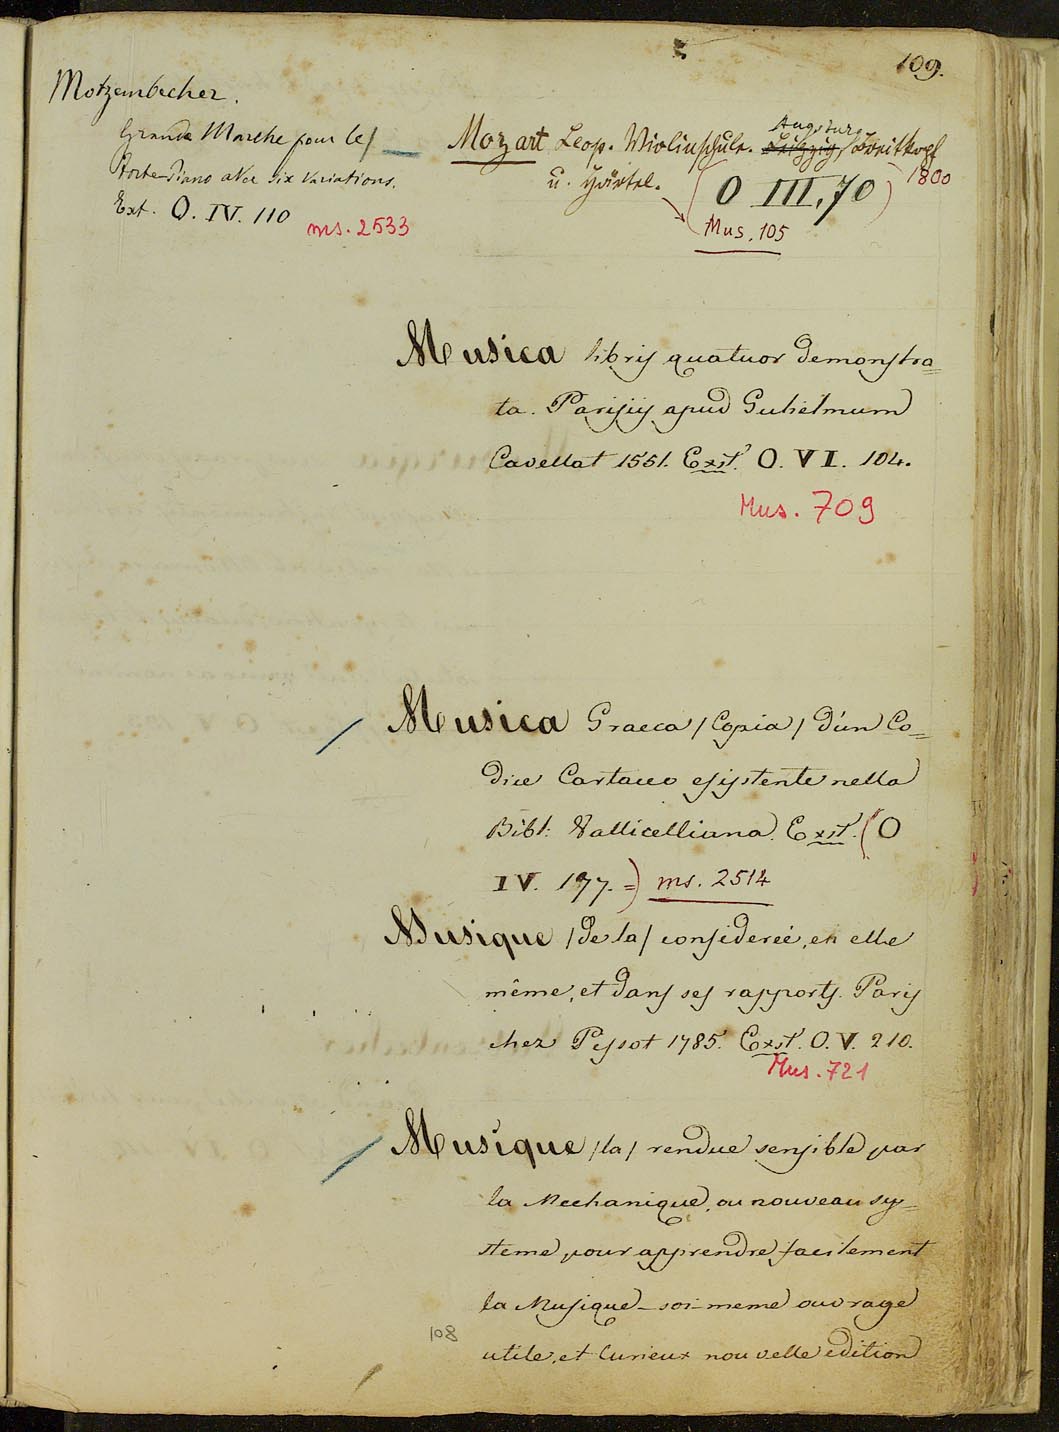 109.
Motzenbecher.
Grande Marche pour le/
Forte-Piano avec six variations.
Ext. O. IV. 110
ms. 2533
Mozart Leop. Violinschule. Leipzig, Breitkopf
Augsburg
u. Härtel.
1800
(O III, 70)
Mus. 105
Musica libris quatuor demonstra=
ta. Parisiis apud Gulielmum
Cavellat 1551. Exst. O. VI. 104.
Mus. 709
Musica Graeca /Copia/ d'un Co=
dice Cartaceo esistente nella
Bibl: Vallicelliana. Exst. (O
IV. 177. =) ms. 2514
Musique /de la/ considereé, en elle
même, et dans ses rapports. Paris
chez Pissot 1785. Exst. O. V. 210.
Mus. 721
Musique /la/ rendue sensible par
la Mechanique, ou nouveau sy=
steme pour apprendre facilement
la Musique soi-meme ouvrage
108
utile, et Curieux nouvelle edition